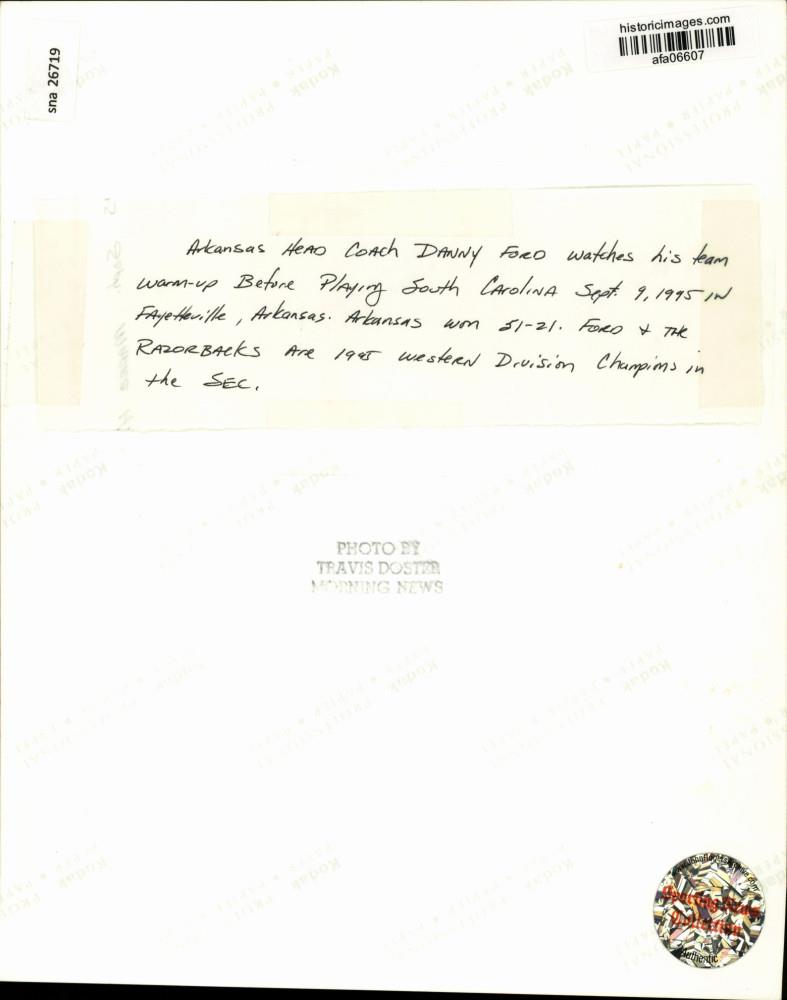 historicimages.com
afa06607
sna 26719
Arkansas Head Coach Danny Ford watches his team
warm-up Before Playing South Carolina Sept. 9, 1995 in
Fayetteville, Arkansas. Arkansas won 51-21. Ford & The
Razorbacks Are 1995 western Division Champions in
the SEC.
PHOTO BY
TRAVIS DOSTER
MORNING NEWS
Sporting News
Collection
Authentic
Kodak
PROFESSIONAL
PAPER